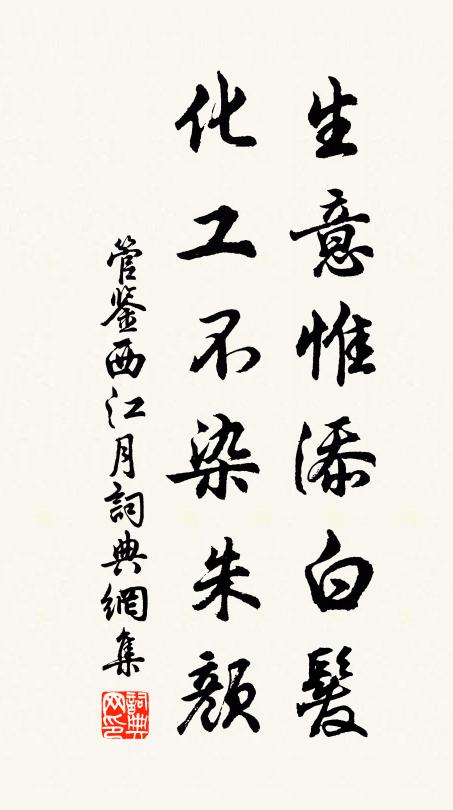 生意惟添白髮
化工不染朱顏
管鑒西江月詞典網集
詞典网印